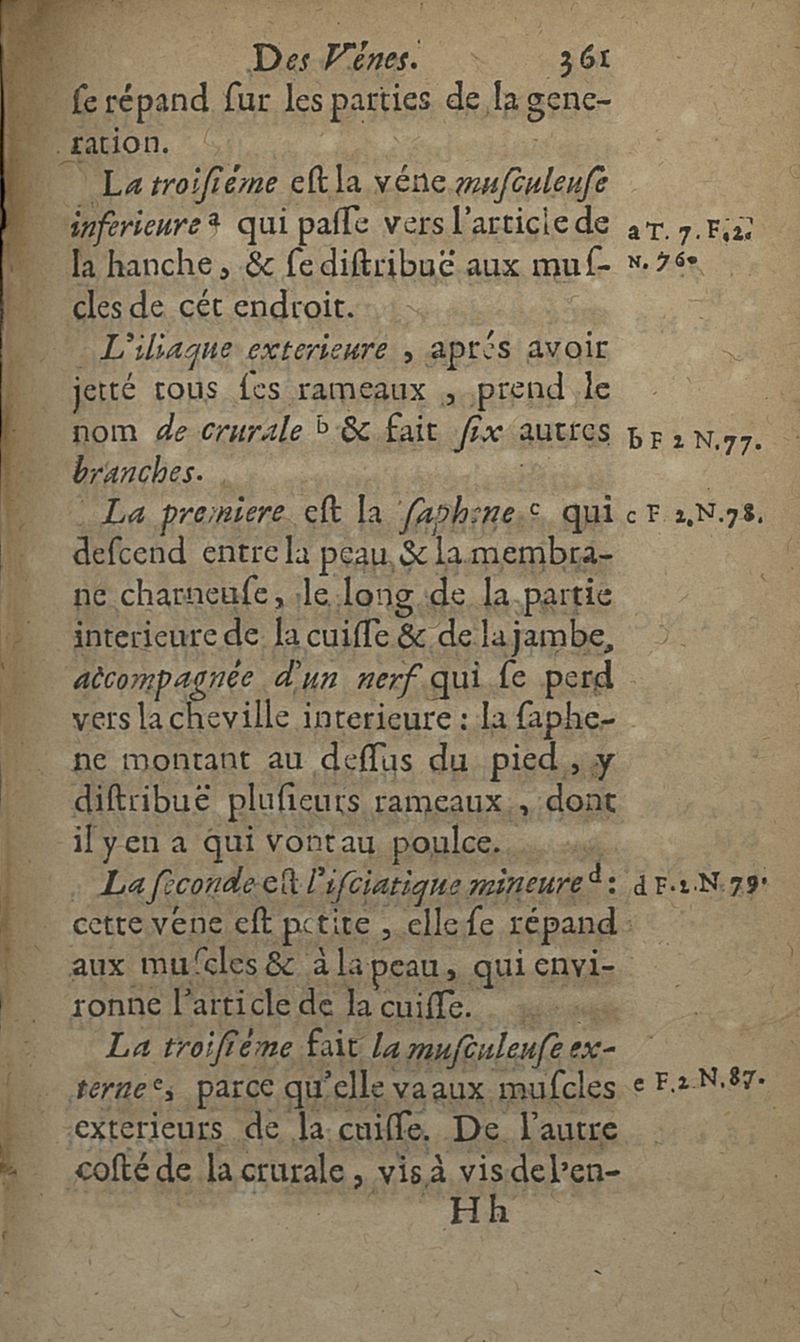 Des Vénes. 361
ſe répand ſur les parties de la gene-
ration.
La troiſiéme eſt la véne muſculeuſe
inferieure a qui paſſe vers l'article de a T. 7. F. 2.
la hanche, & ſe diſtribuë aux muſ- N. 76.
cles de cét endroit.
L'iliaque exterieure , aprés avoir
jetté tous ſes rameaux , prend le
nom de crurale b & fait ſix autres b F 2 N. 77.
branches.
La premiere eſt la ſaphene c qui c F 2, N. 78.
deſcend entre la peau & la membra-
ne charneuſe, le long de la partie
interieure de la cuiſſe & de la jambe,
accompagnée d'un nerf qui ſe perd
vers la cheville interieure : la ſaphe-
ne montant au deſſus du pied , y
diſtribuë pluſieurs rameaux , dont
il y en a qui vont au poulce.
La ſeconde eſt l'iſciatique mineure d : d F. 2. N. 79.
cette véne eſt petite , elle ſe répand
aux muſcles & à la peau, qui envi-
ronne l'article de la cuiſſe.
La troiſiéme fait la muſculeuſe ex-
terne e, parce qu'elle va aux muſcles e F. 2 N. 87.
exterieurs de la cuiſſe. De l'autre
coſté de la crurale , vis à vis de l'en-
Hh